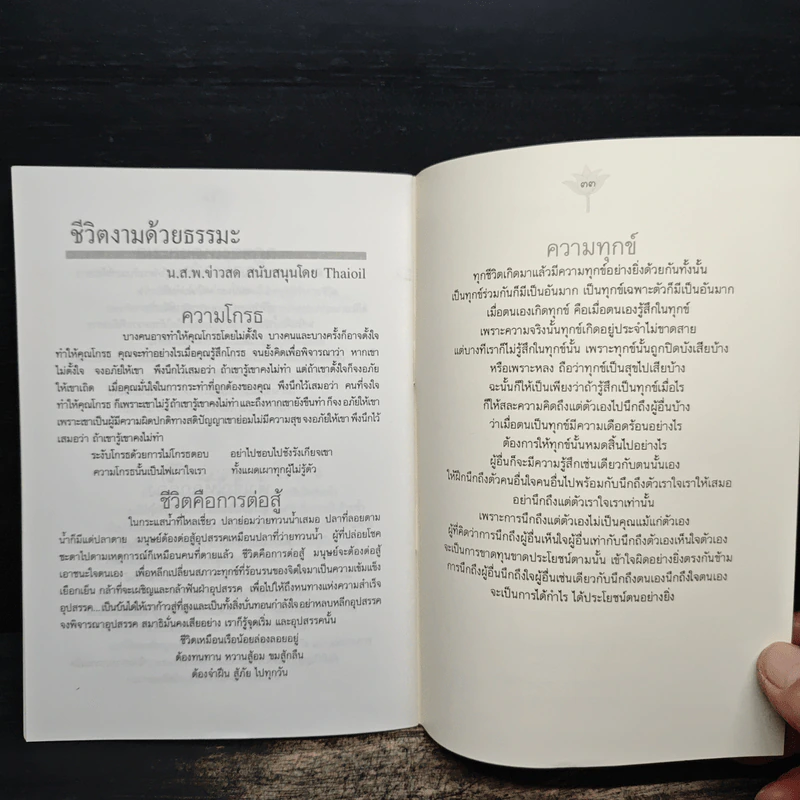 ชีวิตงามด้วยธรรมะ
น.ส.พ.ข่าวสด สนับสนุนโดย Thaioil
ความโกรธ
บางคนอาจทำให้คุณโกรธโดยไม่ตั้งใจ บางคนและบางครั้งก็อาจตั้งใจ
ทำให้คุณโกรธ คุณจะทำอย่างไรเมื่อคุณรู้สึกโกรธ จนยั้งคิดเพื่อพิจารณาว่า หากเขา
ไม่ตั้งใจ จงอภัยให้เขา พึงนึกไว้เสมอว่า ถ้าเขารู้เขาคงไม่ทำ แต่ถ้าเขาตั้งใจก็จงอภัย
ให้เขาเถิด เมื่อคุณมั่นใจในการกระทำที่ถูกต้องของคุณ พึงนึกไว้เสมอว่า คนที่จงใจ
ทำให้คุณโกรธ ก็เพราะเขาไม่รู้ ถ้าเขารู้เขาคงไม่ทำ และถึงหากเขายังขืนทำ ก็จงอภัยให้เขา
เพราะเขาเป็นผู้มีความผิดปกติทางสติปัญญาเขาย่อมไม่มีความสุข จงอภัยให้เขา พึงนึกไว้
เสมอว่า ถ้าเขารู้เขาคงไม่ทำ
ระงับโกรธด้วยการไม่โกรธตอบ อย่าไปชอบไปชังรังเกียจเขา
ความโกรธนั้นเป็นไฟเผาใจเรา ทั้งแผดเผาทุกผู้ไม่รู้ตัว
ชีวิตคือการต่อสู้
ในกระแสน้ำที่ไหลเชี่ยว ปลาย่อมว่ายทวนน้ำเสมอ ปลาที่ลอยตาม
น้ำก็มีแต่ปลาตาย มนุษย์ต้องต่อสู้อุปสรรคเหมือนปลาที่ว่ายทวนน้ำ ผู้ที่ปล่อยโชค
ชะตาไปตามเหตุการณ์ก็เหมือนคนที่ตายแล้ว ชีวิตคือการต่อสู้ มนุษย์จะต้องต่อสู้
เอาชนะใจตนเอง เพื่อหลีกเปลี่ยนสภาวะทุกข์ที่ร้อนรนของจิตใจมาเป็นความเข้มแข็ง
เยือกเย็น กล้าที่จะเผชิญและกล้าฟันฝ่าอุปสรรค เพื่อไปให้ถึงหนทางแห่งความสำเร็จ
อุปสรรค...เป็นบันไดให้เราก้าวสู่ที่สูงและเป็นทั้งสิ่งบั่นทอนกำลังใจ อย่าหลบหลีกอุปสรรค
จงพิจารณาอุปสรรค สมาธิมั่นคงเสียอย่าง เราก็รู้จุดเริ่ม และอุปสรรคนั้น
ชีวิตเหมือนเรือน้อยล่องลอยอยู่
ต้องทนทาน หวานสู้อม ขมสู้กลืน
ต้องจำฝืน สู้ภัย ไปทุกวัน
๓๓
ความทุกข์
ทุกชีวิตเกิดมาแล้วมีความทุกข์อย่างยิ่งด้วยกันทั้งนั้น
เป็นทุกข์ร่วมกันก็มีเป็นอันมาก เป็นทุกข์เฉพาะตัวก็มีเป็นอันมาก
เมื่อตนเองเกิดทุกข์ คือเมื่อตนเองรู้สึกในทุกข์
เพราะความจริงนั้นทุกข์เกิดอยู่ประจำไม่ขาดสาย
แต่บางทีเราก็ไม่รู้สึกในทุกข์นั้น เพราะทุกข์นั้นถูกปิดบังเสียบ้าง
หรือเพราะหลง ถือว่าทุกข์เป็นสุขไปเสียบ้าง
ฉะนั้นก็ให้เป็นเพียงว่าถ้ารู้สึกเป็นทุกข์เมื่อไร
ก็ให้สละความคิดถึงแต่ตัวเองไปนึกถึงผู้อื่นบ้าง
ว่าเมื่อตนเป็นทุกข์มีความเดือดร้อนอย่างไร
ต้องการให้ทุกข์นั้นหมดสิ้นไปอย่างไร
ผู้อื่นก็จะมีความรู้สึกเช่นเดียวกับตนนั้นเอง
ให้ฝึกนึกถึงตัวคนอื่นใจคนอื่นไปพร้อมกับนึกถึงตัวเราใจเราให้เสมอ
อย่านึกถึงแต่ตัวเราใจเราเท่านั้น
เพราะการนึกถึงแต่ตัวเองไม่เป็นคุณแม้แก่ตัวเอง
ผู้ที่คิดว่าการนึกถึงผู้อื่นเห็นใจผู้อื่นเท่ากับนึกถึงตัวเองเห็นใจตัวเอง
จะเป็นการขาดทุนขาดประโยชน์ตามนั้น เข้าใจผิดอย่างยิ่งตรงกันข้าม
การนึกถึงผู้อื่นนึกถึงใจผู้อื่นเช่นเดียวกับนึกถึงตนเองนึกถึงใจตนเอง
จะเป็นการได้กำไร ได้ประโยชน์ตนอย่างยิ่ง